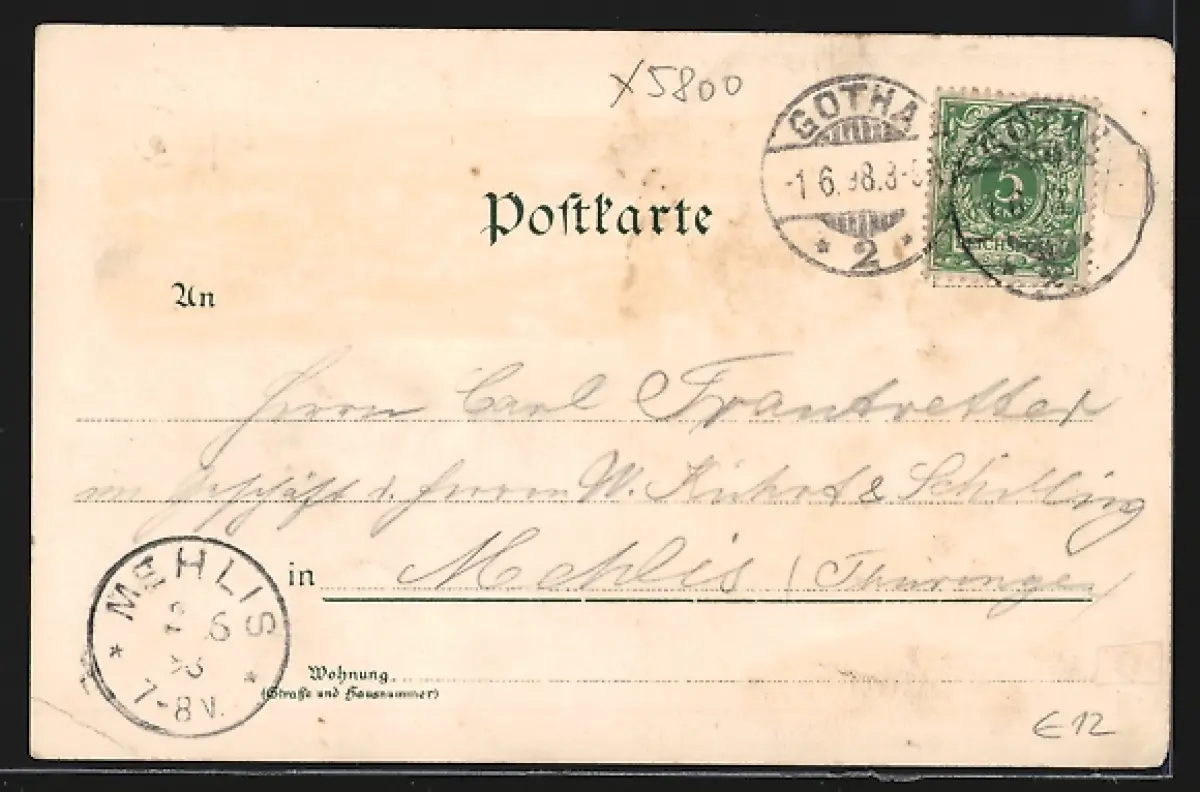 x5800
GOTHA
-1 6.98.8-
* 2 *
5
Postkarte
An
Herrn Carl Frantvetter
im Geschäft d. Herren W. Kührt & Schilling
in Mehlis (Thüringen)
MEHLIS
6
98
7-8V.
Wohnung
(Straße und Hausnummer)
€12